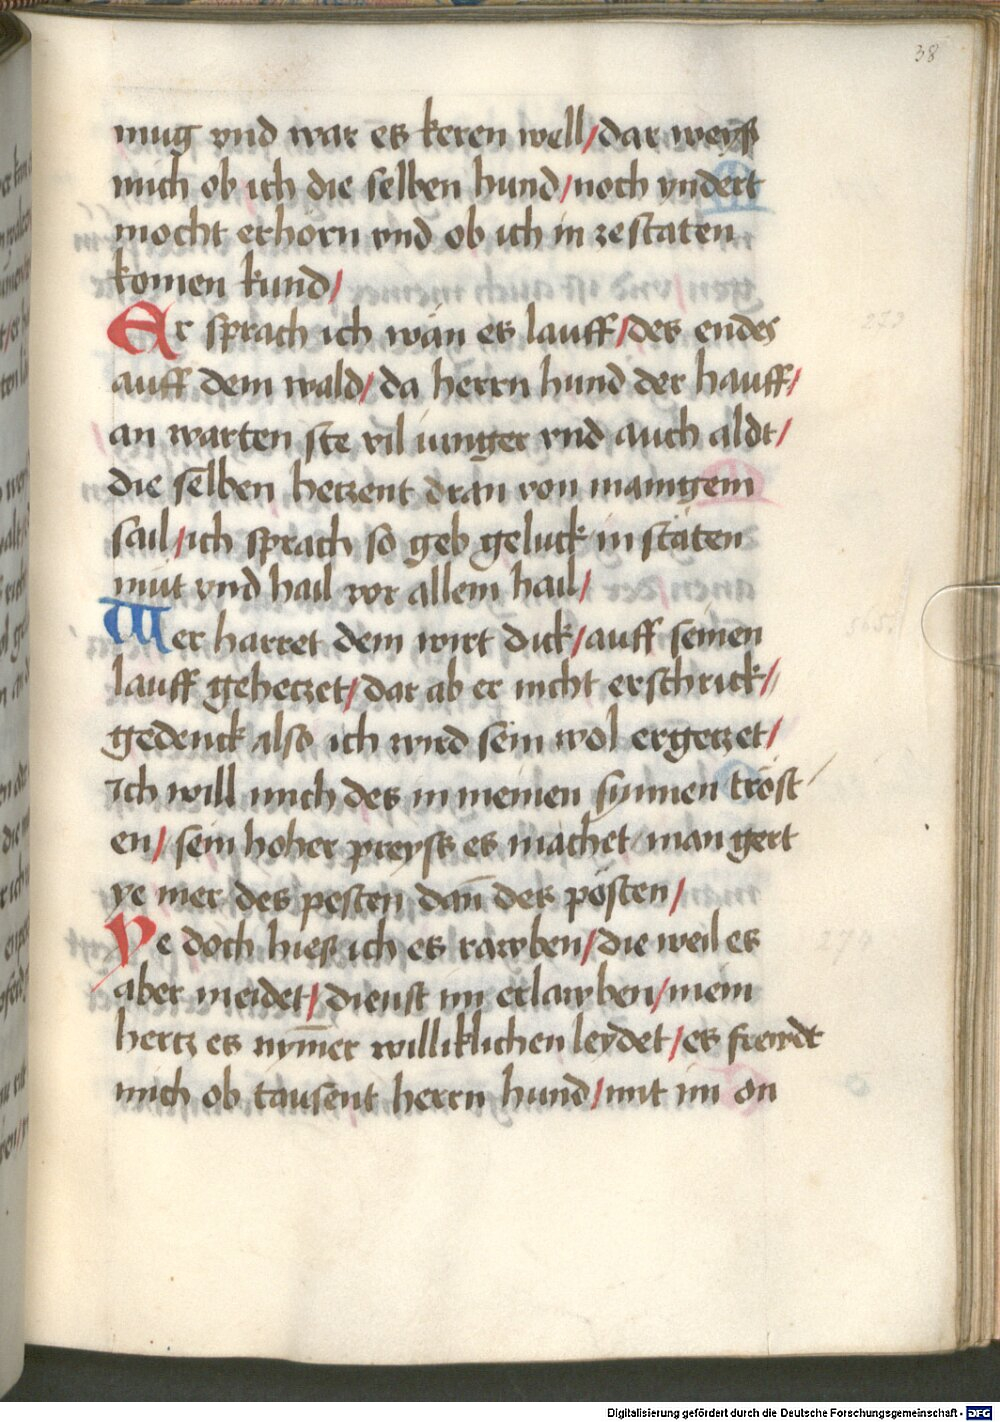 38
mug vnd war es keren well/dar weyß
mich ob ich die selben hund/noch yndert
mocht erhörn vnd ob ich in ze staten
komen kund/
Er sprach ich wän es lauff/des endes
auff dem wald/da herrn hund der hauff/
an warten ste vil iunger vnd auch aldt/
die selben hetzent dran von manigem
sail/ich sprach so geb geluck in stäten
müt vnd hail vor allem hail/
Wer harret dem wirt dick/auff seinen
lauff gehetzet/dar ab er nicht erschrick/
gedenck also ich wird sein wol ergetzet/
Ich will mich des in meinen synnen tröst
en/sein hoher preyss es machet/man gert
ye mer des pesten dan̄ des pösten/
Ye doch hieß ich es rawben/die weil es
aber meidet/dienst im erlawben/mein
hertz es nym̄er williklichen leydet/es frewdt
mich ob tausent herrn hund/mit im on
Digitalisierung gefördert durch die Deutsche Forschungsgemeinschaft - DFG